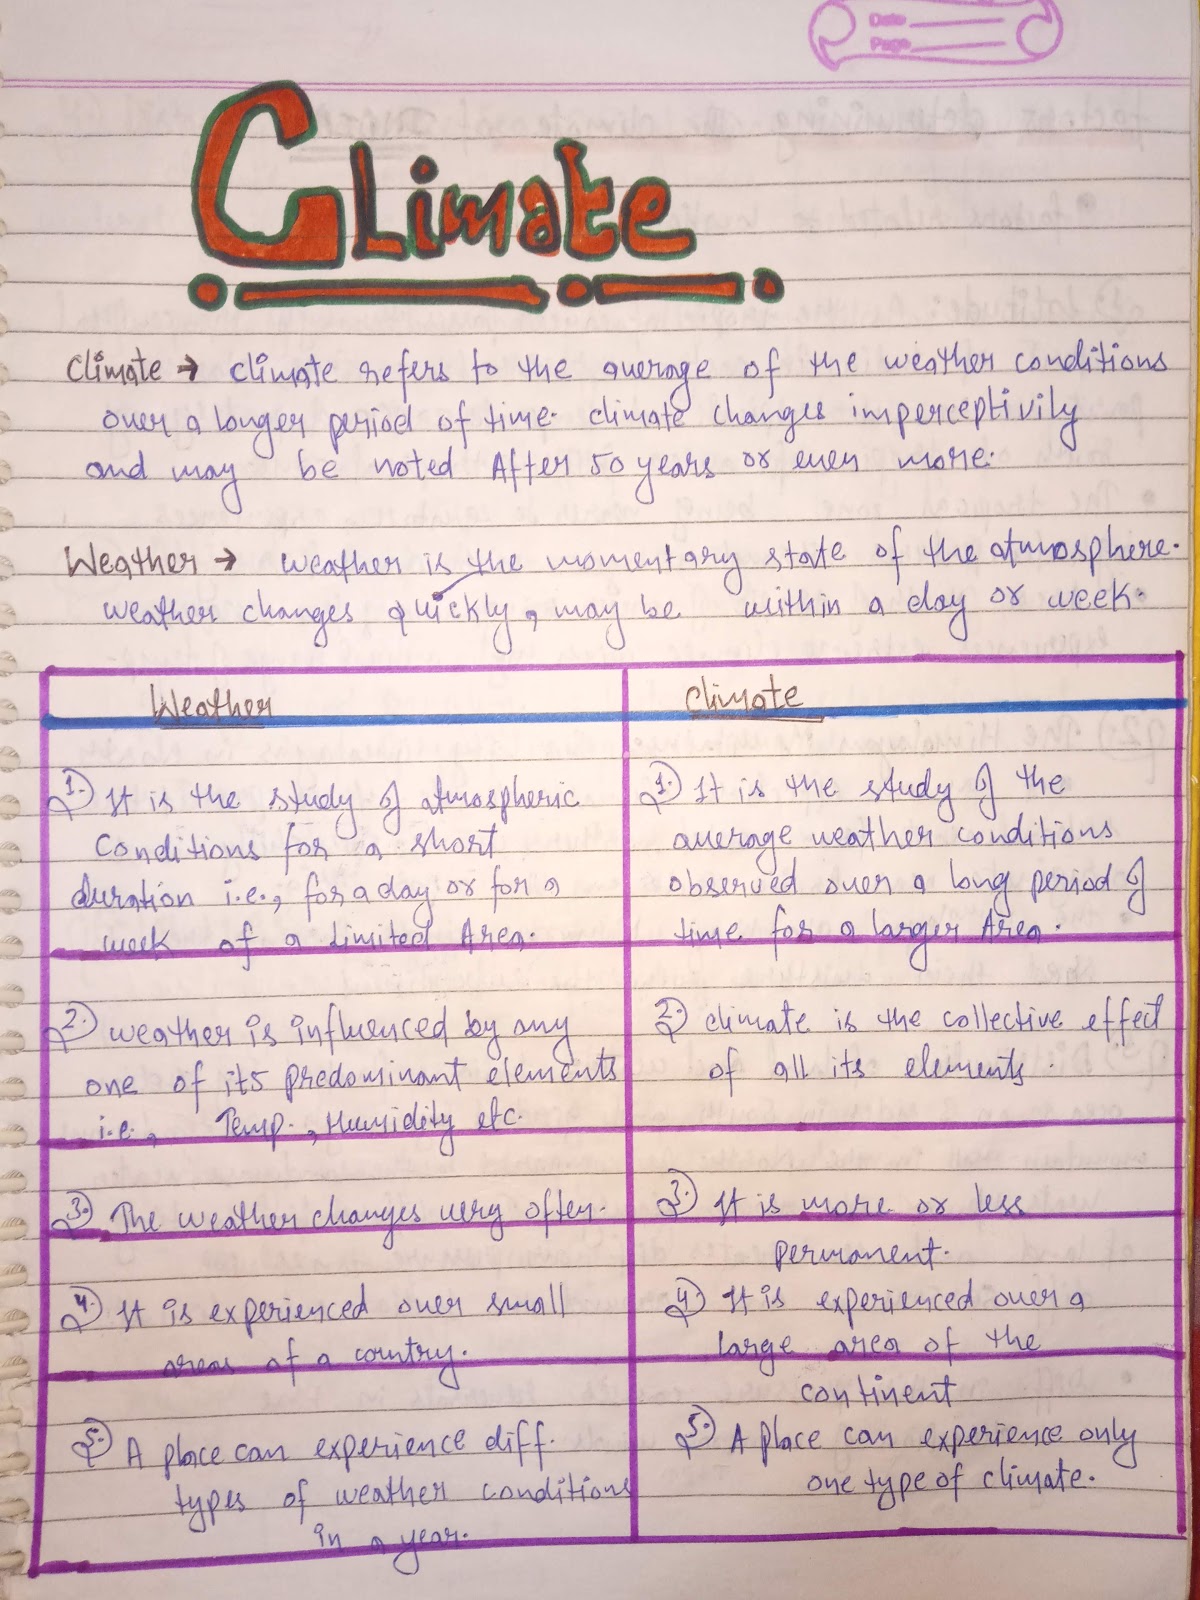 Date
Page
Climate
Climate → climate refers to the average of the weather conditions
over a longer period of time. climate changes imperceptivily
and may be noted After 50 years or even more.
Weather → weather is the momentary state of the atmosphere.
weather changes quickly, may be within a day or week.
Weather
1. It is the study of atmospheric
conditions for a short
duration i.e., for a day or for a
week of a limited Area.
2. weather is influenced by any
one of its predominant elements
i.e., Temp., Humidity etc.
3. The weather changes very often.
4. It is experienced over small
areas of a country.
5. A place can experience diff.
types of weather conditions
in a year.
Climate
1. It is the study of the
average weather conditions
observed over a long period of
time for a larger Area.
2. climate is the collective effect
of all its elements.
3. It is more or less
permanent.
4. It is experienced over a
large area of the
continent
5. A place can experience only
one type of climate.